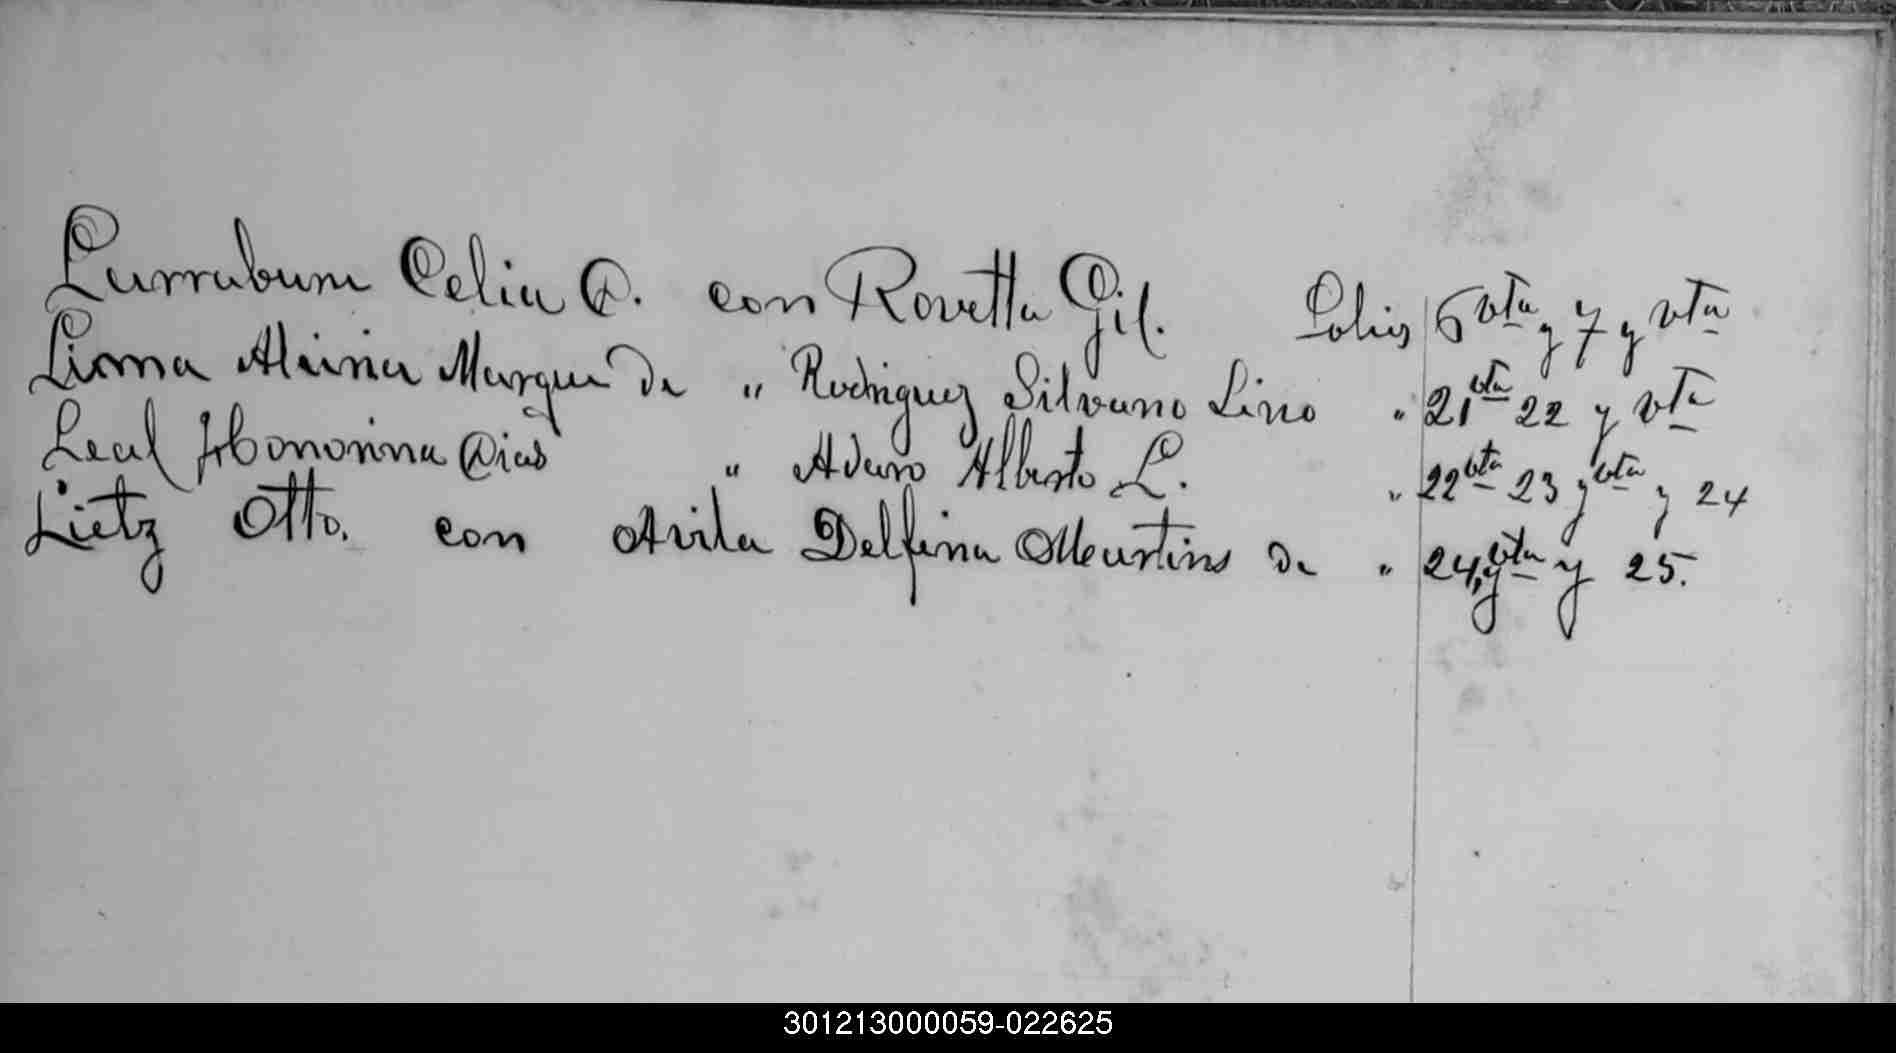 Larrabure Celia A. con Rovetta Gil. Folios 6 vta y 7 y vta
Lima Alcina Marque de " Rodriguez Silvano Lino " 21 vta 22 y vta
Leal Honorina Dias " Aduro Alberto L. " 22 vta 23 y vta y 24
Lietz Otto. con Avila Delfina Martins de " 24, y vta y 25.
301213000059-022625